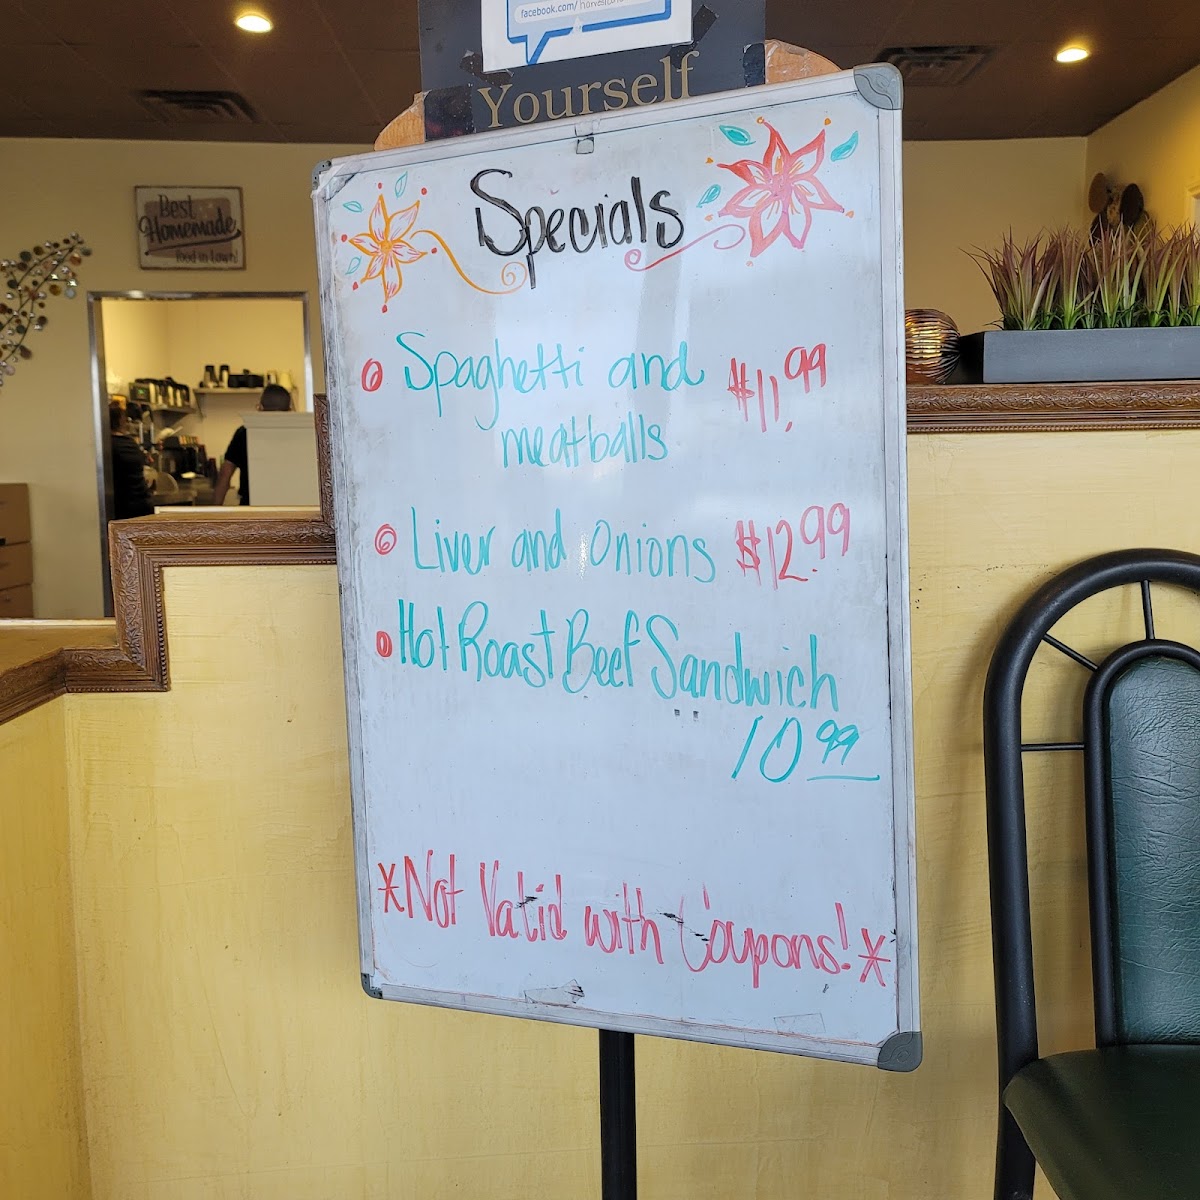 facebook.com/
Yourself
Best
Homemade
food in town!
Specials
Spaghetti and $11.99
meatballs
Liver and onions $12.99
Hot Roast Beef Sandwich
10 99
*Not Valid with Coupons!*